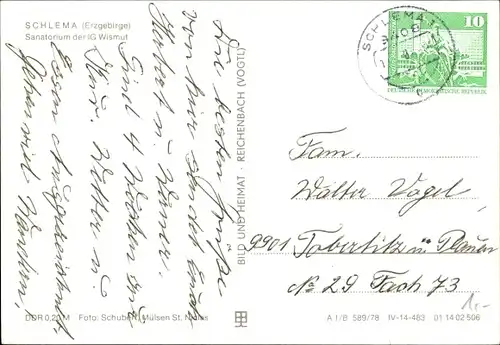 SCHLEMA (Erzgebirge)
Sanatorium der IG Wismut
Die besten Grüße
von hier sendet Euch
Herbert u. Werner.
Sind 4 Wochen hier
Wetter u.
Essen ausgezeichnet.
DDR 0,20 M Foto: Schubert, Mülsen St. Niclas
BILD UND HEIMAT · REICHENBACH (VOGTL)
SCHLEMA
10
DEUTSCHE DEMOKRATISCHE REPUBLIK
Fam.
Walter Vogel
9901 Tobertitz ü Plauen
No 29 Fach 73
A 1/B 589/78 IV-14-483 01 14 02 506
1,-